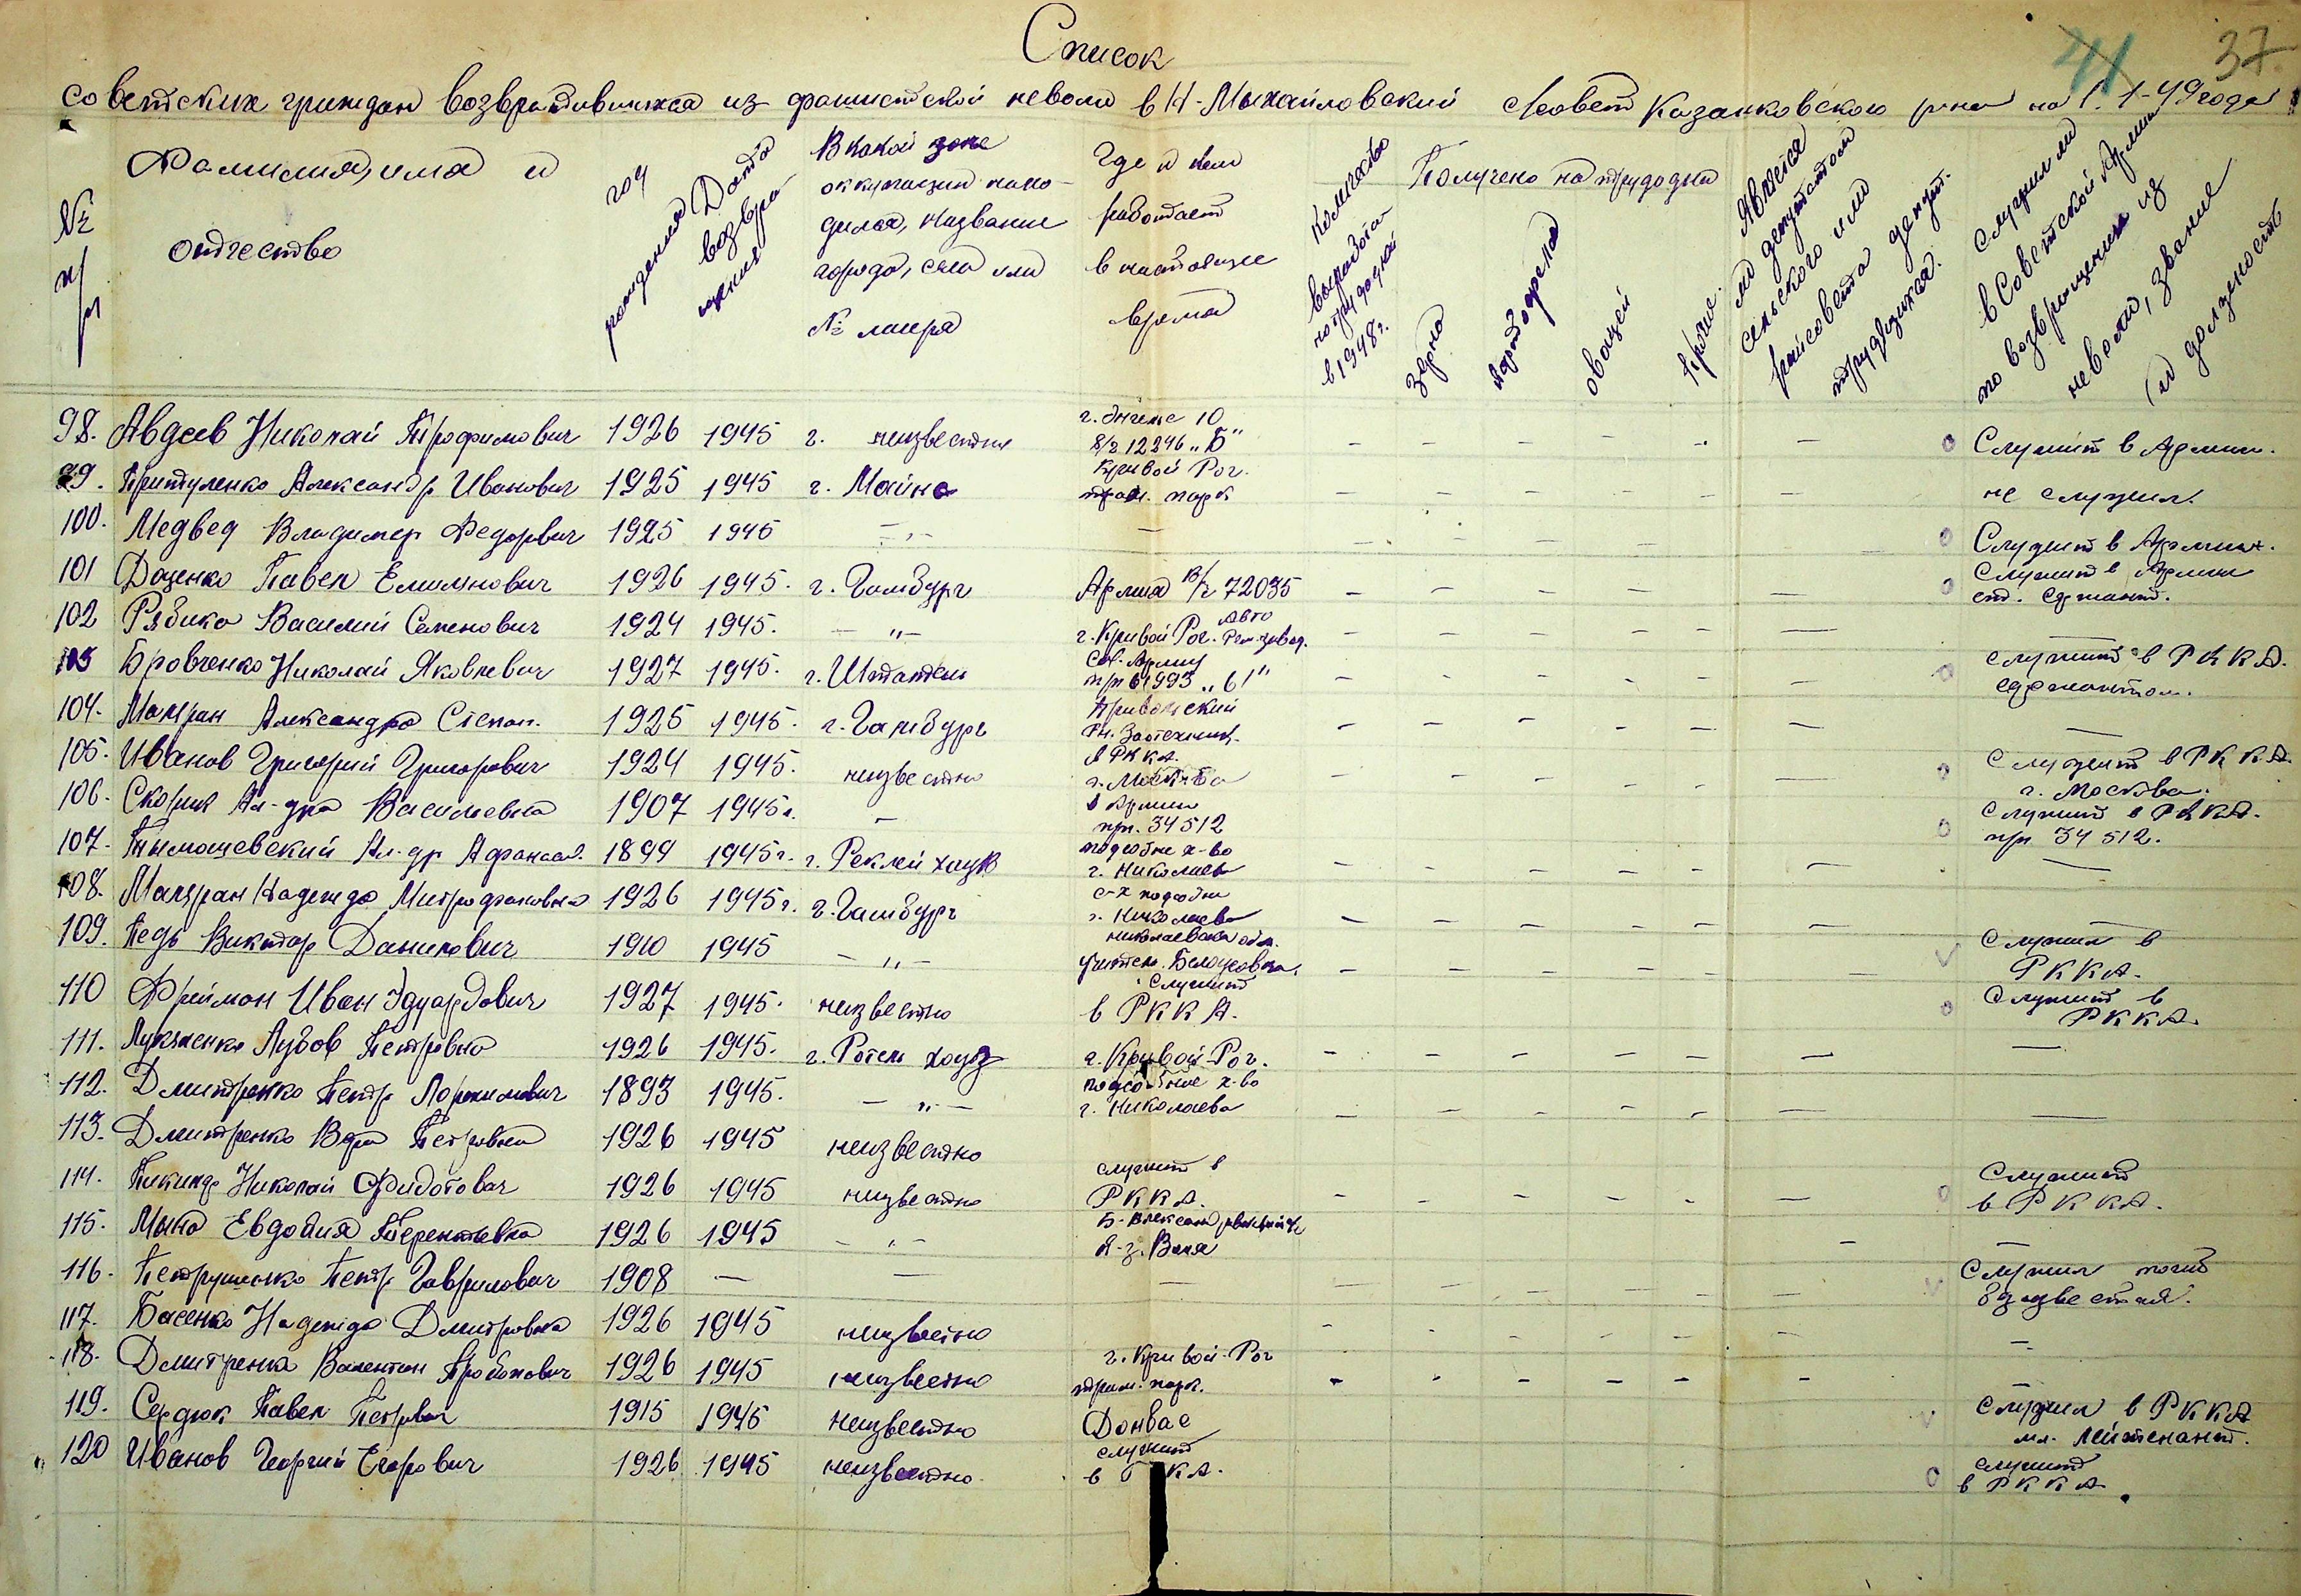 41 37.
Список
советских граждан возвратившихся из фашистской неволи в Н-Михайловский Совет Казанковского р-на на 1.1-49 года
№ п/п
Фамилия, имя и отчество
год рождения
Дата возвращения
В какой зоне
оккупации нахо-
дился, название
города, села или
№ лагеря
Где и кем
работает
в настоящее
время
Количество
выработа-
но трудодней
в 1948 г.
Получено на трудодни
зерна
картофеля
овощей
прочие.
Является
ли депутатом
сельского или
райсовета депут.
трудящихся.
Служил ли
в Советской Армии
по возвращении из
неволи, звание
и должность
98. Авдеев Николай Трофимович 1926 1945 г. неизвестно г. Энгельс 10 в/ч 12246 „Б" – – – – – – Служит в Армии.
99. Притуленко Александр Иванович 1925 1945 г. Майнс Кривой Рог. трам. парк – – – – – – не служил.
100. Медвед Владимер Федорович 1925 1945 –„– – – – – – – – Служит в Армии.
101 Доценко Павел Емилянович 1926 1945. г. Гамбург Армия в/ч 72035 – – – – – – Служит в Армии ст. сержант.
102 Рябико Василий Семенович 1924 1945. –„– г. Кривой Рог. Авто Рем-завод. – – – – – – –
103 Бровченко Николай Яковлевич 1927 1945. г. Штатен Сов. Армия п/п 61993 „61" – – – – – – служит в РККА. сержантом.
104. Мацран Александра Степан. 1925 1945. г. Гамбург Привольский Рн. Зоотехник. – – – – – – –
105. Иванов Григорий Григорович 1924 1945. неизвестно в РККА. г. Москва – – – – – – Служит в РККА. г. Москва.
106. Скорик Ал-дра Васильевна 1907 1945 г. – в Армии п/п. 34512 Служит в РККА. п/п 34512.
107. Тымошевский Ал-др Афанасов. 1899 1945 г. г. Реклей хауз подсобне х-во г. Николаев – – – – – – –
108. Мацран Надежда Митрофановна 1926 1945 г. г. Гамбург с-х подсобн г. Николаева – – – – – –
109. Педь Виктор Данилович 1910 1945 –„– николаевская обл. учител. Белоусовка. – – – – – – Служил в РККА.
110 Фрейман Иван Эдуардович 1927 1945. неизвестно Служит в РККА. Служит в РККА.
111. Лукяненко Любов Петровна 1926 1945. г. Ротен хауз г. Кривой-Рог. – – – – – – –
112. Дмитренко Петр Лорионович 1893 1945. –„– подсобние х-во г. Николаева – – – – – – –
113. Дмитренко Вера Петровна 1926 1945 неизвестно
114. Пикинер Николай Фидотович 1926 1945 неизвестно служит в РККА. – – – – – – Служит в РККА.
115. Мына Евдокия Терентьевна 1926 1945 –„– Б-Александровский р-н К-з. Воля – –
116. Петрушенко Петр Гаврилович 1908 – – – – – – – – – Служил погиб
117. Басенко Надежда Дмитровна 1926 1945 неизвестно – – – – – – –
118. Дмитренко Валентин Прокопович 1926 1945 неизвестно г. Кривой-Рог трам. парк. – – – – – – –
119. Сердюк Павел Петрович 1915 1945 неизвестно Донбас Служил в РККА мл. лейтенант.
120 Иванов Георгий Егорович 1926 1945 неизвестно. служит в РККА. служит в РККА.